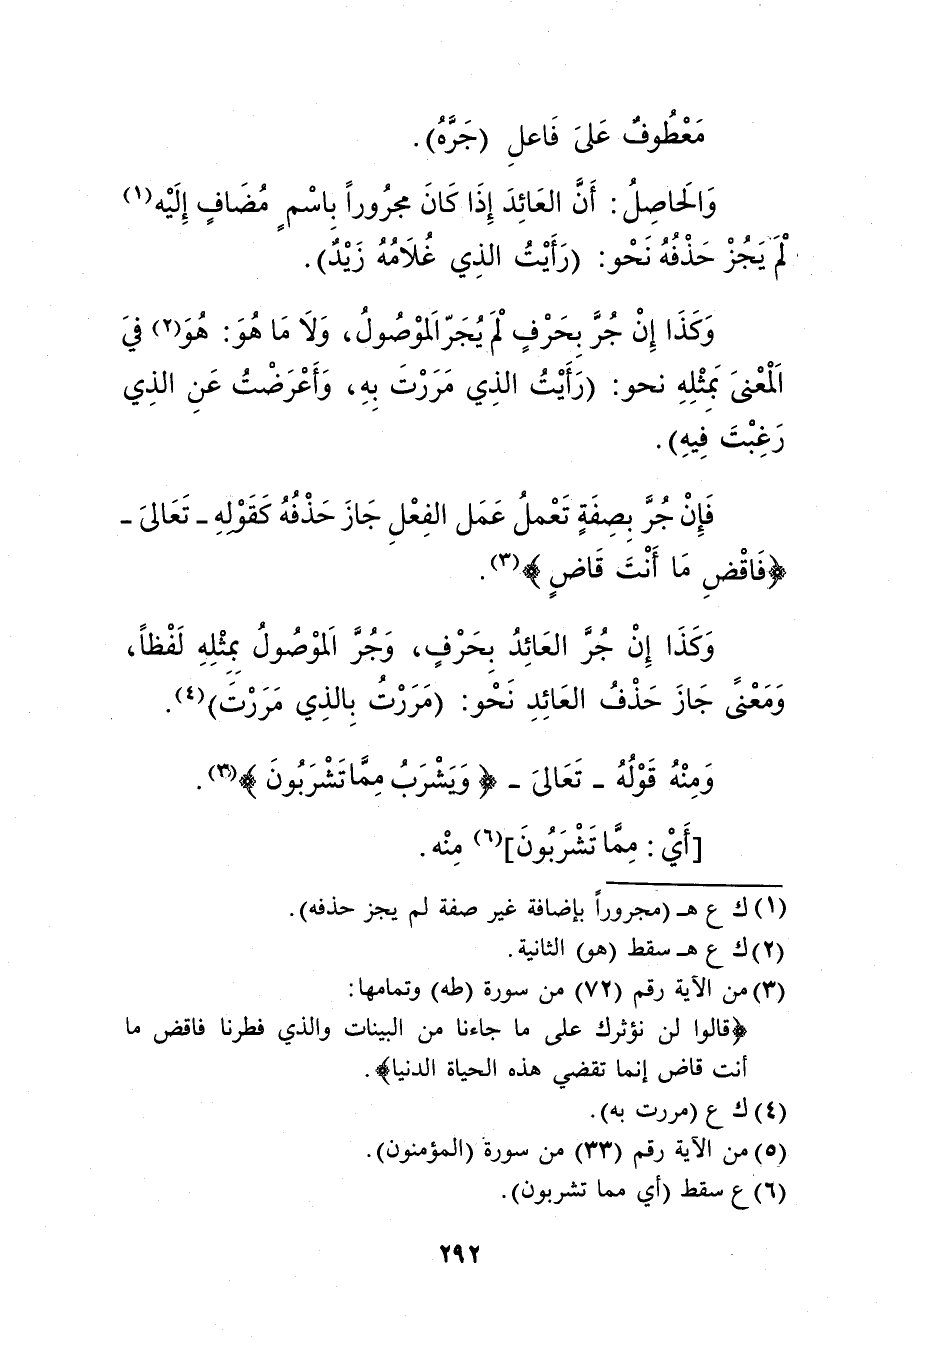 مَعْطُوفٌ عَلَى فَاعلِ (جَرَّهُ).
وَالحَاصِلُ: أَنَّ العَائِدَ إِذَا كَانَ مجرُوراً بِاسْمٍ مُضَافٍ إِلَيْه(١)
لَمْ يَجُزْ حَذْفُهُ نَحْو: (رَأَيْتُ الذِي غُلَامُهُ زَيْدٌ).
وَكَذَا إِنْ جُرَّ بِحَرْفٍ لَمْ يُجَرّ اَلموْصُولُ، وَلَا مَا هُوَ: هُوَ(٢) فِيَ
اَلْمعْنىَ بَمِثْلِهِ نحو: (رَأَيْتُ الذِي مَرَرْتَ بِهِ، وَأَعْرَضْتُ عَنِ الذِي
رَغِبْتَ فِيهِ).
فَإِنْ جُرَّ بِصِفَةٍ تَعْملُ عَمَل الفِعْلِ جَازَ حَذْفُهُ كَقَوْلِهِ - تَعَالىَ -
﴿فَاقْضِ مَا أَنْتَ قَاضٍ﴾(٣).
وَكَذَا إِنْ جُرَّ العَائِدُ بِحَرْفٍ، وَجُرَّ اَلموْصُولُ بِمثْلِهِ لَفْظاً،
وَمَعْنىً جَازَ حَذْفُ العَائِدِ نَحْو: (مَرَرْتُ بِالذِي مَرَرْتَ)(٤).
وَمِنْهُ قَوْلُهُ - تَعَالىَ - ﴿وَيَشْرَبُ مِمَّا تَشْرَبُونَ﴾(٣).
[أَيْ: مِمَّا تَشْرَبُونَ](٦) مِنْه.
(١) ك ع هـ (مجروراً بإضافة غير صفة لم يجز حذفه).
(٢) ك ع هـ سقط (هو) الثانية.
(٣) من الآية رقم (٧٢) من سورة (طه) وتمامها:
﴿قالوا لن نؤثرك على ما جاءنا من البينات والذي فطرنا فاقض ما
أنت قاض إنما تقضي هذه الحياة الدنيا﴾.
(٤) ك ع (مررت به).
(٥) من الآية رقم (٣٣) من سورة (المؤمنون).
(٦) ع سقط (أي مما تشربون).
٢٩٢